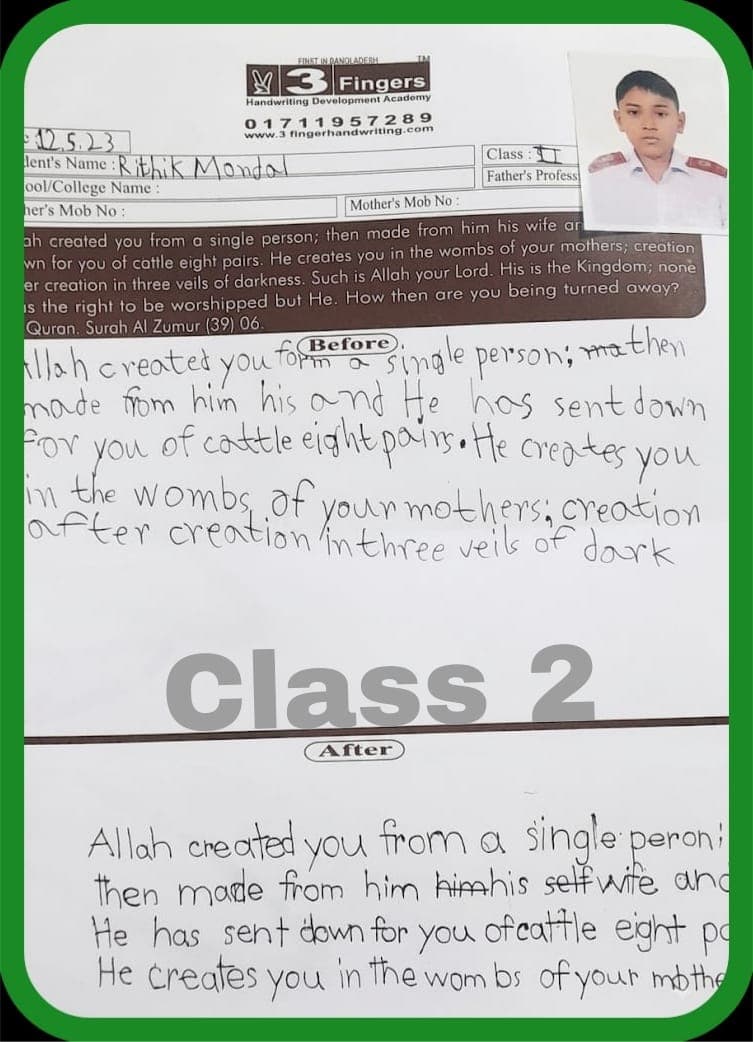 FIRST IN BANGLADESH TM
3 Fingers
Handwriting Development Academy
01711957289
www.3 fingerhandwriting.com
: 12.5.23
dent's Name : Rithik Mondal
Class : II
ool/College Name :
Father's Profess
her's Mob No :
Mother's Mob No :
ah created you from a single person; then made from him his wife an
wn for you of cattle eight pairs. He creates you in the wombs of your mothers; creation
er creation in three veils of darkness. Such is Allah your Lord. His is the Kingdom; none
as the right to be worshipped but He. How then are you being turned away?
Quran. Surah Al Zumur (39) 06.
Before
Allah created you form a single person; ma then
made from him his and He has sent down
For you of cattle eight pairs. He creates you
in the wombs of your mothers; creation
after creation in three veils of dark
Class 2
After
Allah created you from a single peron;
then made from him him his self wife and
He has sent down for you of cattle eight pa
He creates you in the wombs of your mothe